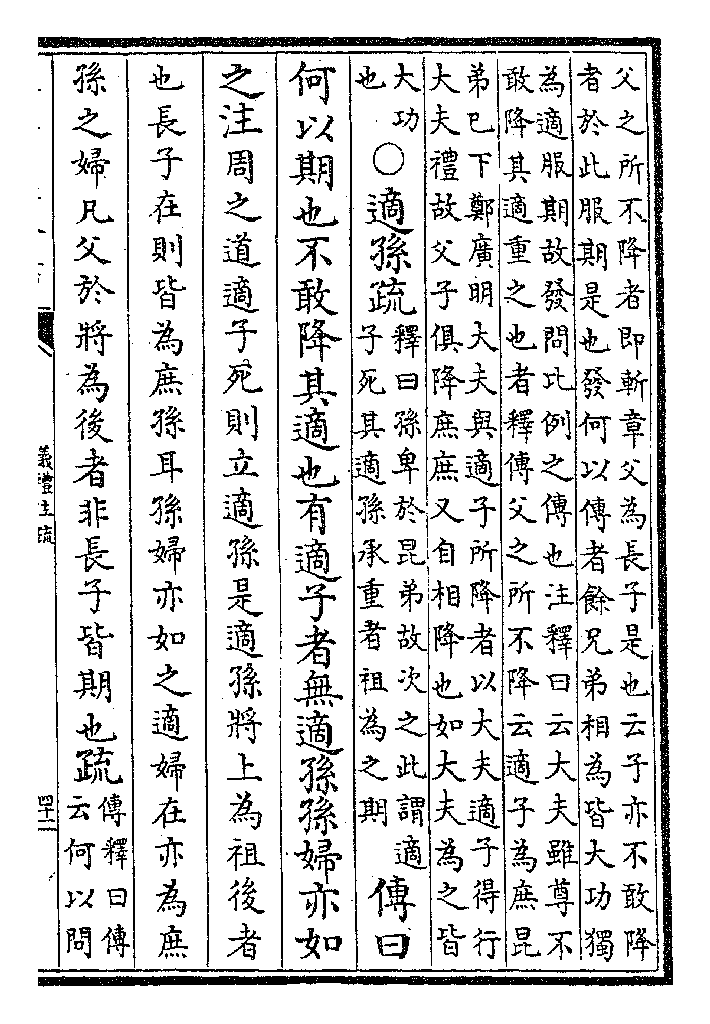 父之所不降者即斬章父為長子是也云子亦不敢降
者於此服期是也發何以傳者餘兄弟相為皆大功獨
為適服期故發問比例之傳也注釋曰云大夫雖尊不
敢降其適重之也者釋傳父之所不降云適子為庶昆
弟已下鄭廣明大夫與適子所降者以大夫適子得行
大夫禮故父子俱降庶庶又自相降也如大夫為之皆
大功
也
○適孫疏
釋曰孫卑於昆弟故次之此謂適
子死其適孫承重者祖為之期
傳曰
何以期也不敢降其適也有適子者無適孫孫婦亦如
之注周之道適子死則立適孫是適孫將上為祖後者
也長子在則皆為庶孫耳孫婦亦如之適婦在亦為庶
孫之婦凡父於將為後者非長子皆期也疏
傳釋曰傳
云何以問
義禮主疏
四十二